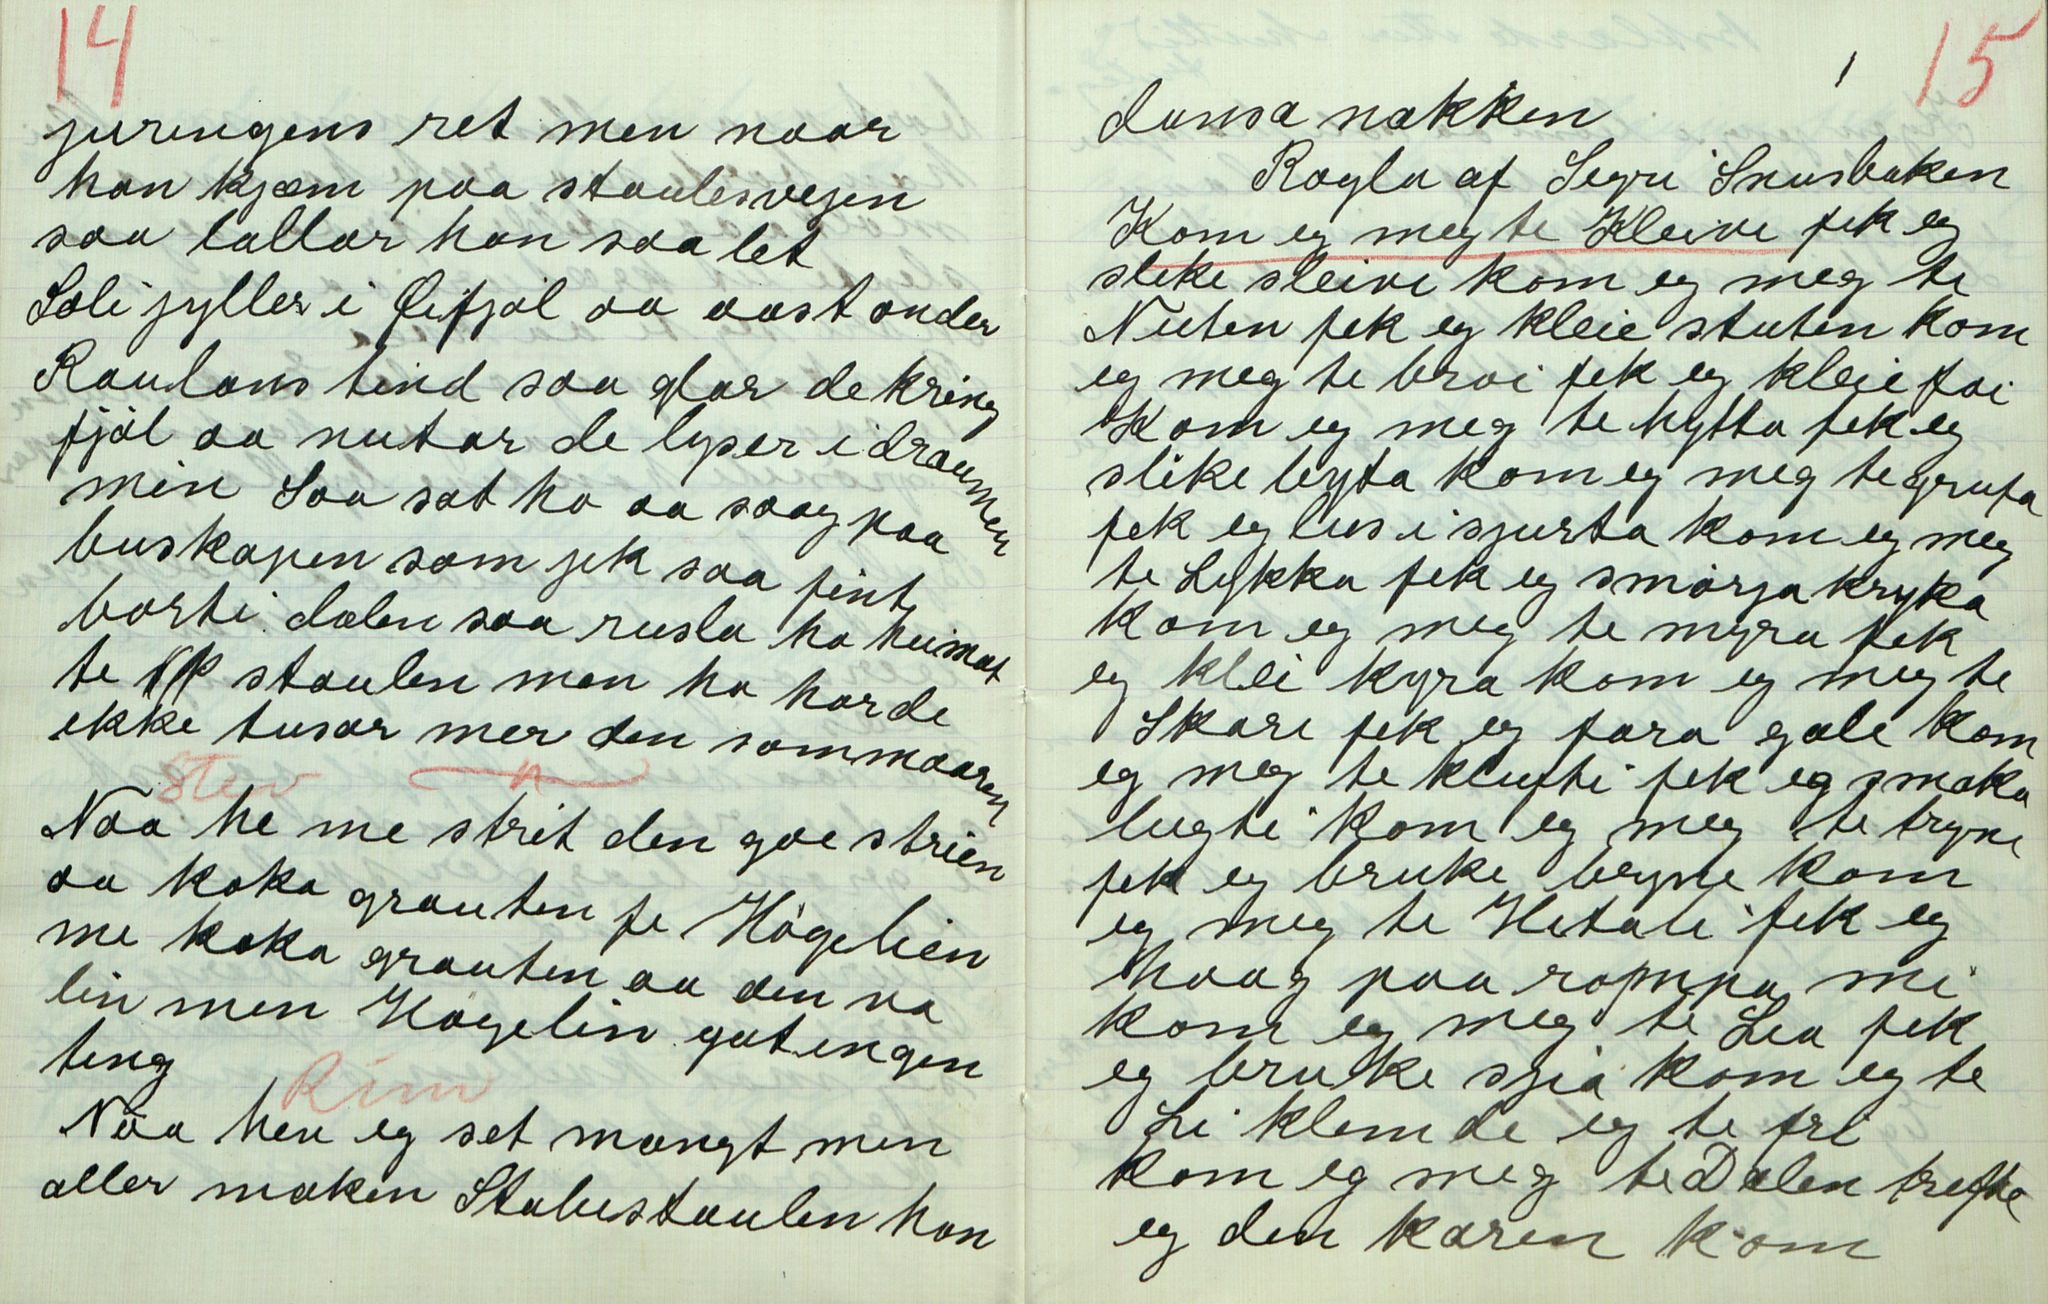 14
juringens ret men naar
han kjæm paa staulesvejen
saa lallar han saa let
Soli jyller i Øifjøl aa aast onder
Raulans tind saa glar de kring
fjøl aa nutar de lyser i draumen
min Saa sat ho aa saag paa
buskapen som jek saa fint
borti dalen saa rusla ho heimat
te staulen men ho horde
ekke tusar mer den sommaaren
Stev
Naa he me strit den goe strien
aa koka grauten fe Högelien
me koka grauten aa den va
lin men Högelin gat ingen
ting
Rim
Naa heu eg set mangt men
aller maken Stalustaulen han
15
dansa nakken
Rogla af Segri Snusbaken
Kom eg meg te Kleive fek eg
slike sleive kom eg meg te
Nuten fek eg kleie stuten kom
eg meg te broi fek eg kleie foi
Kom eg meg te hytta fek eg
slike byta kom eg meg te grufa
fek eg lus i sjurta kom eg meg
te Løkka fek eg smørja kryka
kom eg meg te myra fek
eg klei kyra kom eg meg te
Skare fek eg fara gale kom
eg meg te klufti fek eg smaka
lugti kom eg meg te tryne
fek eg bruke bryne kom
eg meg te Hetali fek eg
haag paa rompa mi
kom eg meg te Lea fek
eg bruke sjia kom eg te
Li klemde eg te fri
kom eg meg te Dalen trefte
eg den karen kom